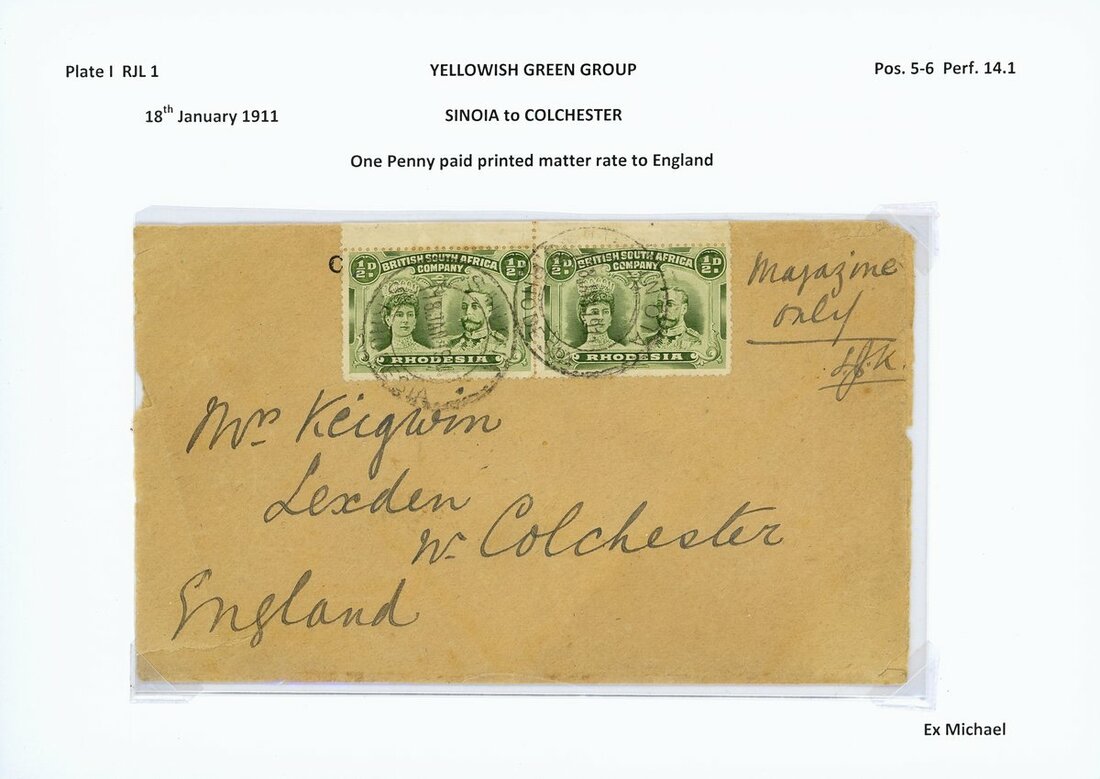 Plate I RJL 1
YELLOWISH GREEN GROUP
Pos. 5-6 Perf. 14.1
18th January 1911
SINOIA to COLCHESTER
One Penny paid printed matter rate to England
C
½D BRITISH SOUTH AFRICA ½D
COMPANY
RHODESIA
½D BRITISH SOUTH AFRICA ½D
COMPANY
RHODESIA
Magazine
only
Mrs Keigwin
Lexden
Nr Colchester
England
Ex Michael